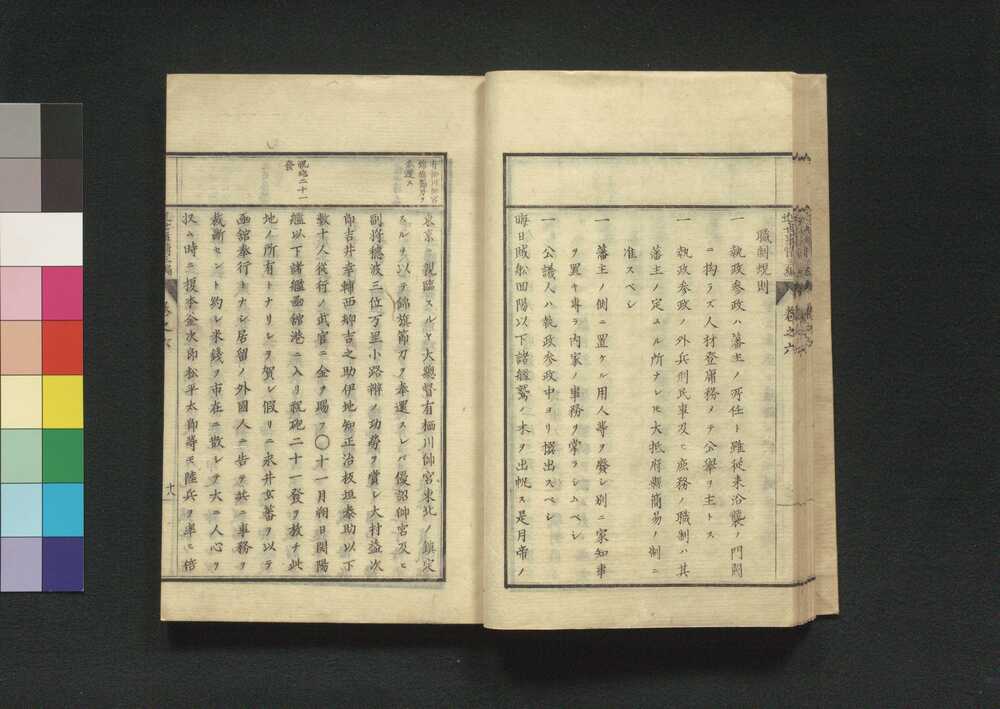 職制規則
一 執政参政ハ藩主ノ所任ト雖従来沿襲ノ門閥
ニ拘ラズ人材登庸務メテ公挙ヲ主トス
一 執政参政ノ外兵刑民事及ヒ庶務ノ職制ハ其
藩主ノ定ムル所ナレ𪜈大抵府縣簡易ノ制ニ
准スベシ
一 藩主ノ側ニ置ケル用人等ヲ廢シ別ニ家知事
ヲ置キ専ラ内家ノ事務ヲ掌ラシムベシ
一 公議人ハ執政参政中ヨリ撰出スベシ
晦日賊船回陽以下諸艦鷲ノ木ヲ出帆ス是月帝ノ
巻之六
有栖川帥宮
錦旗節刀ヲ
奉還ス
東京ニ親臨スルヤ大總督有栖川帥宮東北ノ鎮定
スルヲ以テ錦旗節刀ヲ奉還スレバ優詔帥宮及ヒ
副将德波三位万里小路辨ノ功労ヲ賞シ大村益次
郎吉井幸輔西郷吉之助伊地知正治板垣泰助以下
数十人從行ノ武官ニ金ヲ賜フ〇十一月朔日開陽
祝砲二十一
發
艦以下諸艦函舘港ニ入リ祝砲二十一發ヲ放チ此
地ノ所有トナリシヲ賀シ假リニ永井玄蕃ヲ以テ
函舘奉行トナシ居留ノ外國人ニ告ケ共ニ事務ヲ
裁断セント約シ米錢ヲ市在ニ散シテ大ニ人心ヲ
収ム時ニ榎本金次郎松平太郎等モ陸兵ヲ率ヒ倍
巻之六
十八